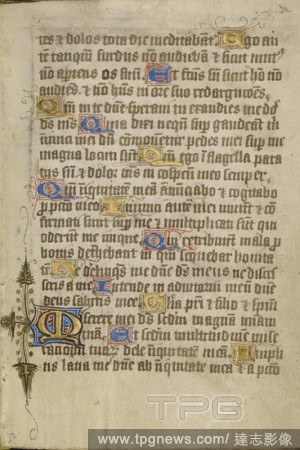 tes et dolos tota die meditabant. Ego au
tem tanqm surdus nō audiebā et sicut mut
nō aperiens os suū. Et fcus sū sicut hō nō
audies et nō hns in ore suo redargucōes.
Qm in te dne speraui tu exaudies me do
ds ms. Quia dixi neqn sup gaudeant m
inimici mei dū cōmouetur pedes mei sup me
magna locuti sūt. Qm ego i flagella para
tus sū et dolor ms in cospcu meo semper
Qm iniquitatē meā anunciabo et cogitabo
p pcco meo. Inimici autē mei uiuūt et cō
firmati sunt sup me et multiplicati sūt qui
oderūt me inique. Qui retribuūt mala p
bonis detrahebant m qm sequebar bonita
tē Ne derelinqs me dne ds meus ne disces
seris a me. Intende in adiutoriū meū dne
deus salutis mee. Glia pri et filio et spui
Miserere mei ds sedm magnā miam
tuam. Et sedm multitudinē mise
racionū tuar dele iniquitatē meā. Ampli
us laua me dne ab iniquitate mea et a pcco
TPG
www.tpgnews.com / 達志影像